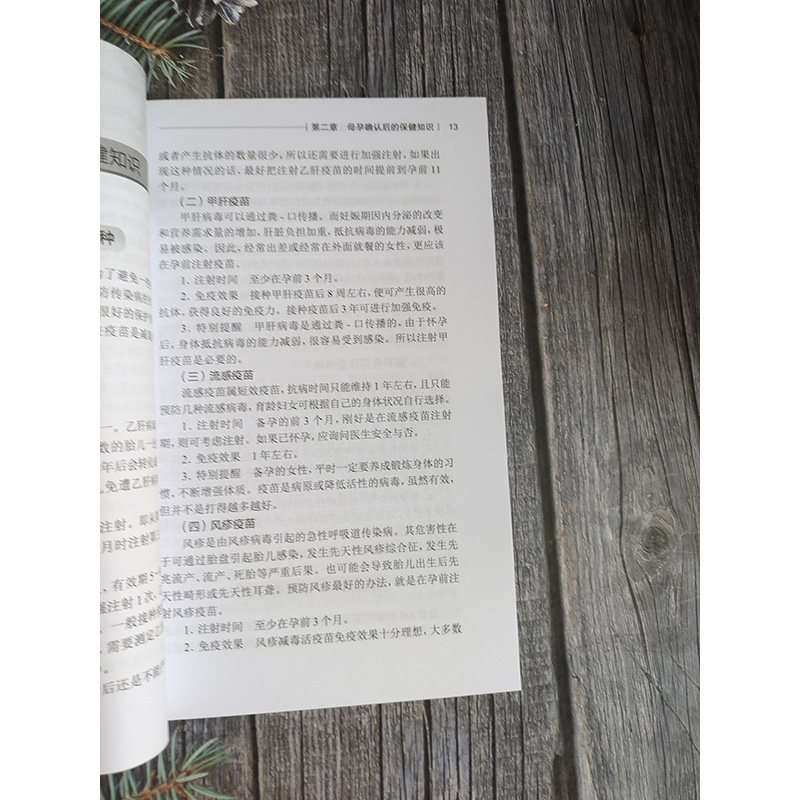 建知识
种
了避免一些
防传染病的
很好的保护
疫苗是减毒
一。乙肝病
数的胎儿一
年后会转
免遭乙肝病
注射。即从
月时注射第
、有效期5
强注射1次,
、一般接种
,需要测定乙
后还是不能
第二章 母孕确认后的保健知识 13
或者产生抗体的数量很少,所以还需要进行加强注射,如果出
现这种情况的话,最好把注射乙肝疫苗的时间提前到孕前 11
个月。
(二)甲肝疫苗
甲肝病毒可以通过粪 - 口传播。而妊娠期因内分泌的改变
和营养需求量的增加,肝脏负担加重,抵抗病毒的能力减弱,极
易被感染。因此,经常出差或经常在外面就餐的女性,更应该
在孕前注射疫苗。
1. 注射时间 至少在孕前 3 个月。
2. 免疫效果 接种甲肝疫苗后 8 周左右,便可产生很高的
抗体,获得良好的免疫力。接种疫苗后 3 年可进行加强免疫。
3. 特别提醒 甲肝病毒是通过粪 - 口传播的,由于怀孕
后,身体抵抗病毒的能力减弱,很容易受到感染。所以注射甲
肝疫苗是必要的。
(三)流感疫苗
流感疫苗属短效疫苗,抗病时间只能维持 1 年左右,且只能
预防几种流感病毒,育龄妇女可根据自己的身体状况自行选择。
1. 注射时间 备孕的前 3 个月,刚好是在流感疫苗注射
期,则可考虑注射。如果已怀孕,应询问医生安全与否。
2. 免疫效果 1 年左右。
3. 特别提醒 备孕的女性,平时一定要养成锻炼身体的习
惯,不断增强体质。疫苗是病原或降低活性的病毒,虽然有效,
但并不是打得越多越好。
(四)风疹疫苗
风疹是由风疹病毒引起的急性呼吸道传染病。其危害性在
于可通过胎盘引起胎儿感染,发生先天性风疹综合征,发生先
兆流产、流产、死胎等严重后果。也可能会导致胎儿出生后先
天性畸形或先天性耳聋。预防风疹最好的办法,就是在孕前注
射风疹疫苗。
1. 注射时间 至少在孕前 3 个月。
2. 免疫效果 风疹减毒活疫苗免疫效果十分理想,大多数